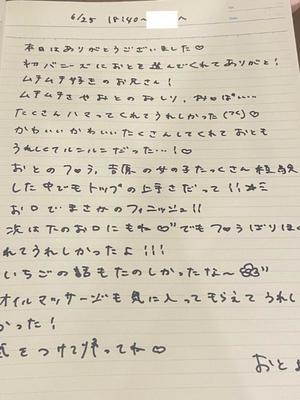 6/25 18:40〜 へ
本日はありがとうございました♡
初バニーズにおとを選んでくれてありがと!
ムチムチ好きのお兄さん!
ムチムチさやおとのおしり、おっぱい…
たくさんハマってくれてうれしかった
かわいいかわいいたくさんしてくれておとも
うれしくてルンルンだった…!♡
おとのフ♡ラ、吉原の女の子たっくさん経験
した中でもトップの上手さだって!!
お口でまさかのフィニッシュ!!
次は下のお口にもね♡でもフ♡ラばりほ
れてうれしかったよ!!!
いちごの話もたのしかったな〜
オイルマッサージも気に入ってもらえてうれし
かった!
気をつけて帰ってね♡
おとよ